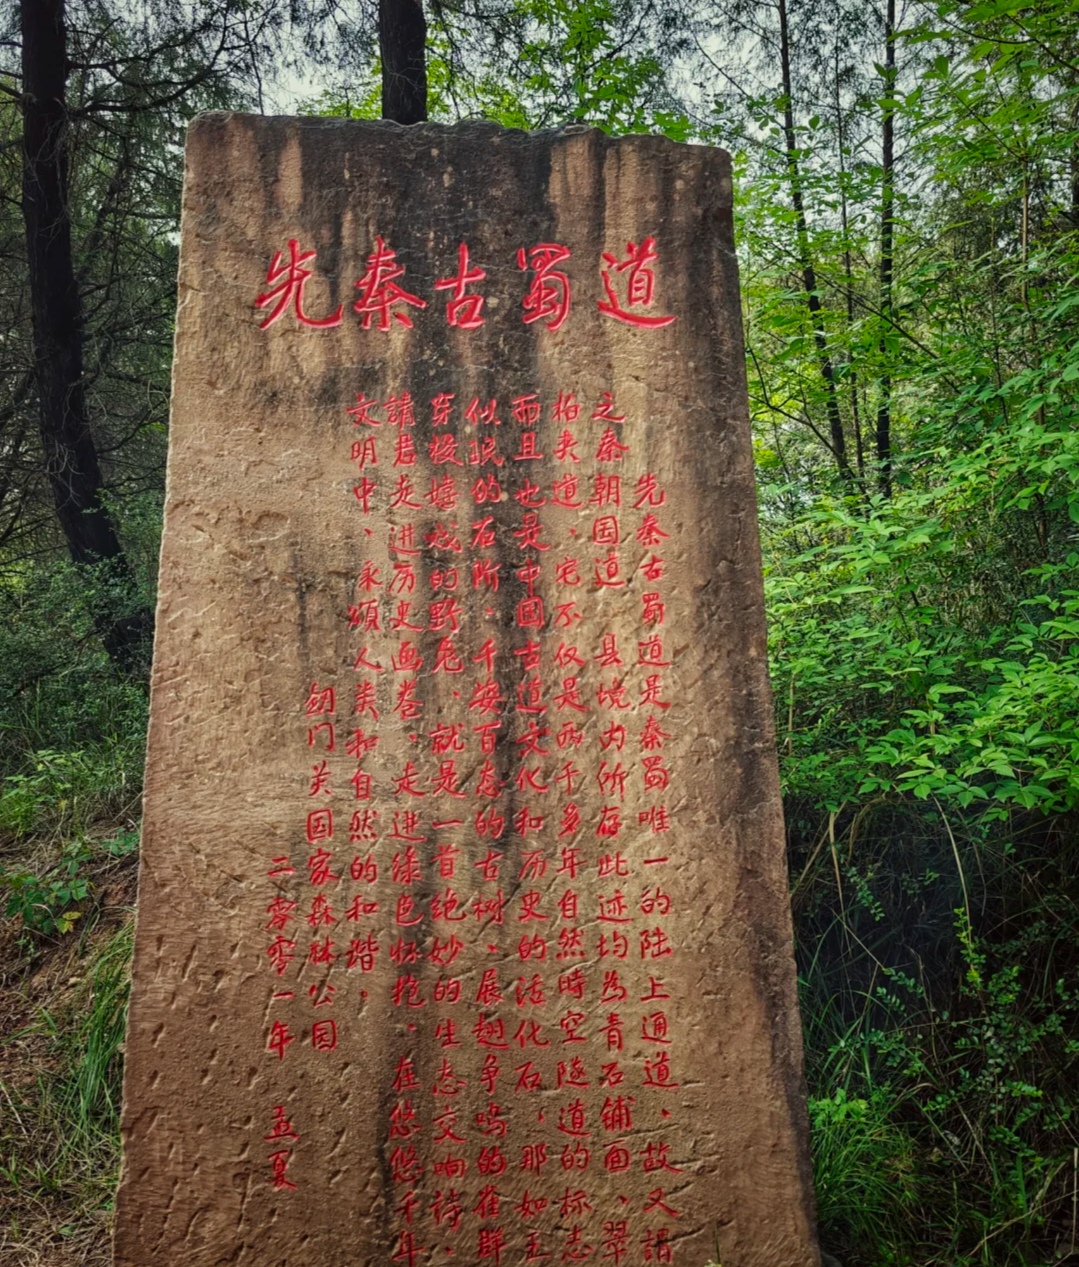 先秦古蜀道
先秦古蜀道是秦蜀唯一的陆上通道、故又謂
之秦朝国道 县境内所存此迹均為青石铺面、翠
柏夹道、它不仅是两千多年自然時空隧道的标志
而且也是中国古道文化和历史的活化石，那如玉
似珉的石阶。千姿百态的古树、展翅争鸣的雀群
穿梭嬉戏的野兔、就是一首绝妙的生态交响诗、
請君走进历史画卷、走进绿色怀抱、在悠悠千年
文明中、来頌人类和自然的和谐。
剑门关国家森林公园
二零零一年 五夏